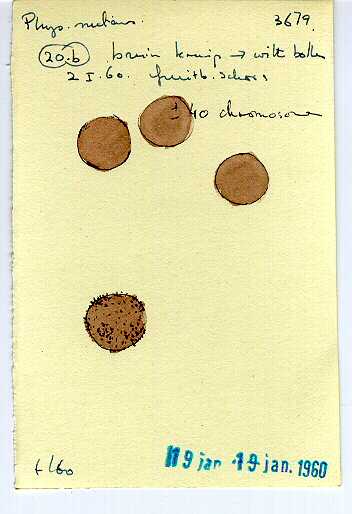 Phys. nutans.
3679.
20.b bruin kruip → witte bollen
2 I. 60. fruitb. schors
± 40 chromosomen
1/60
19 jan 19 jan. 1960